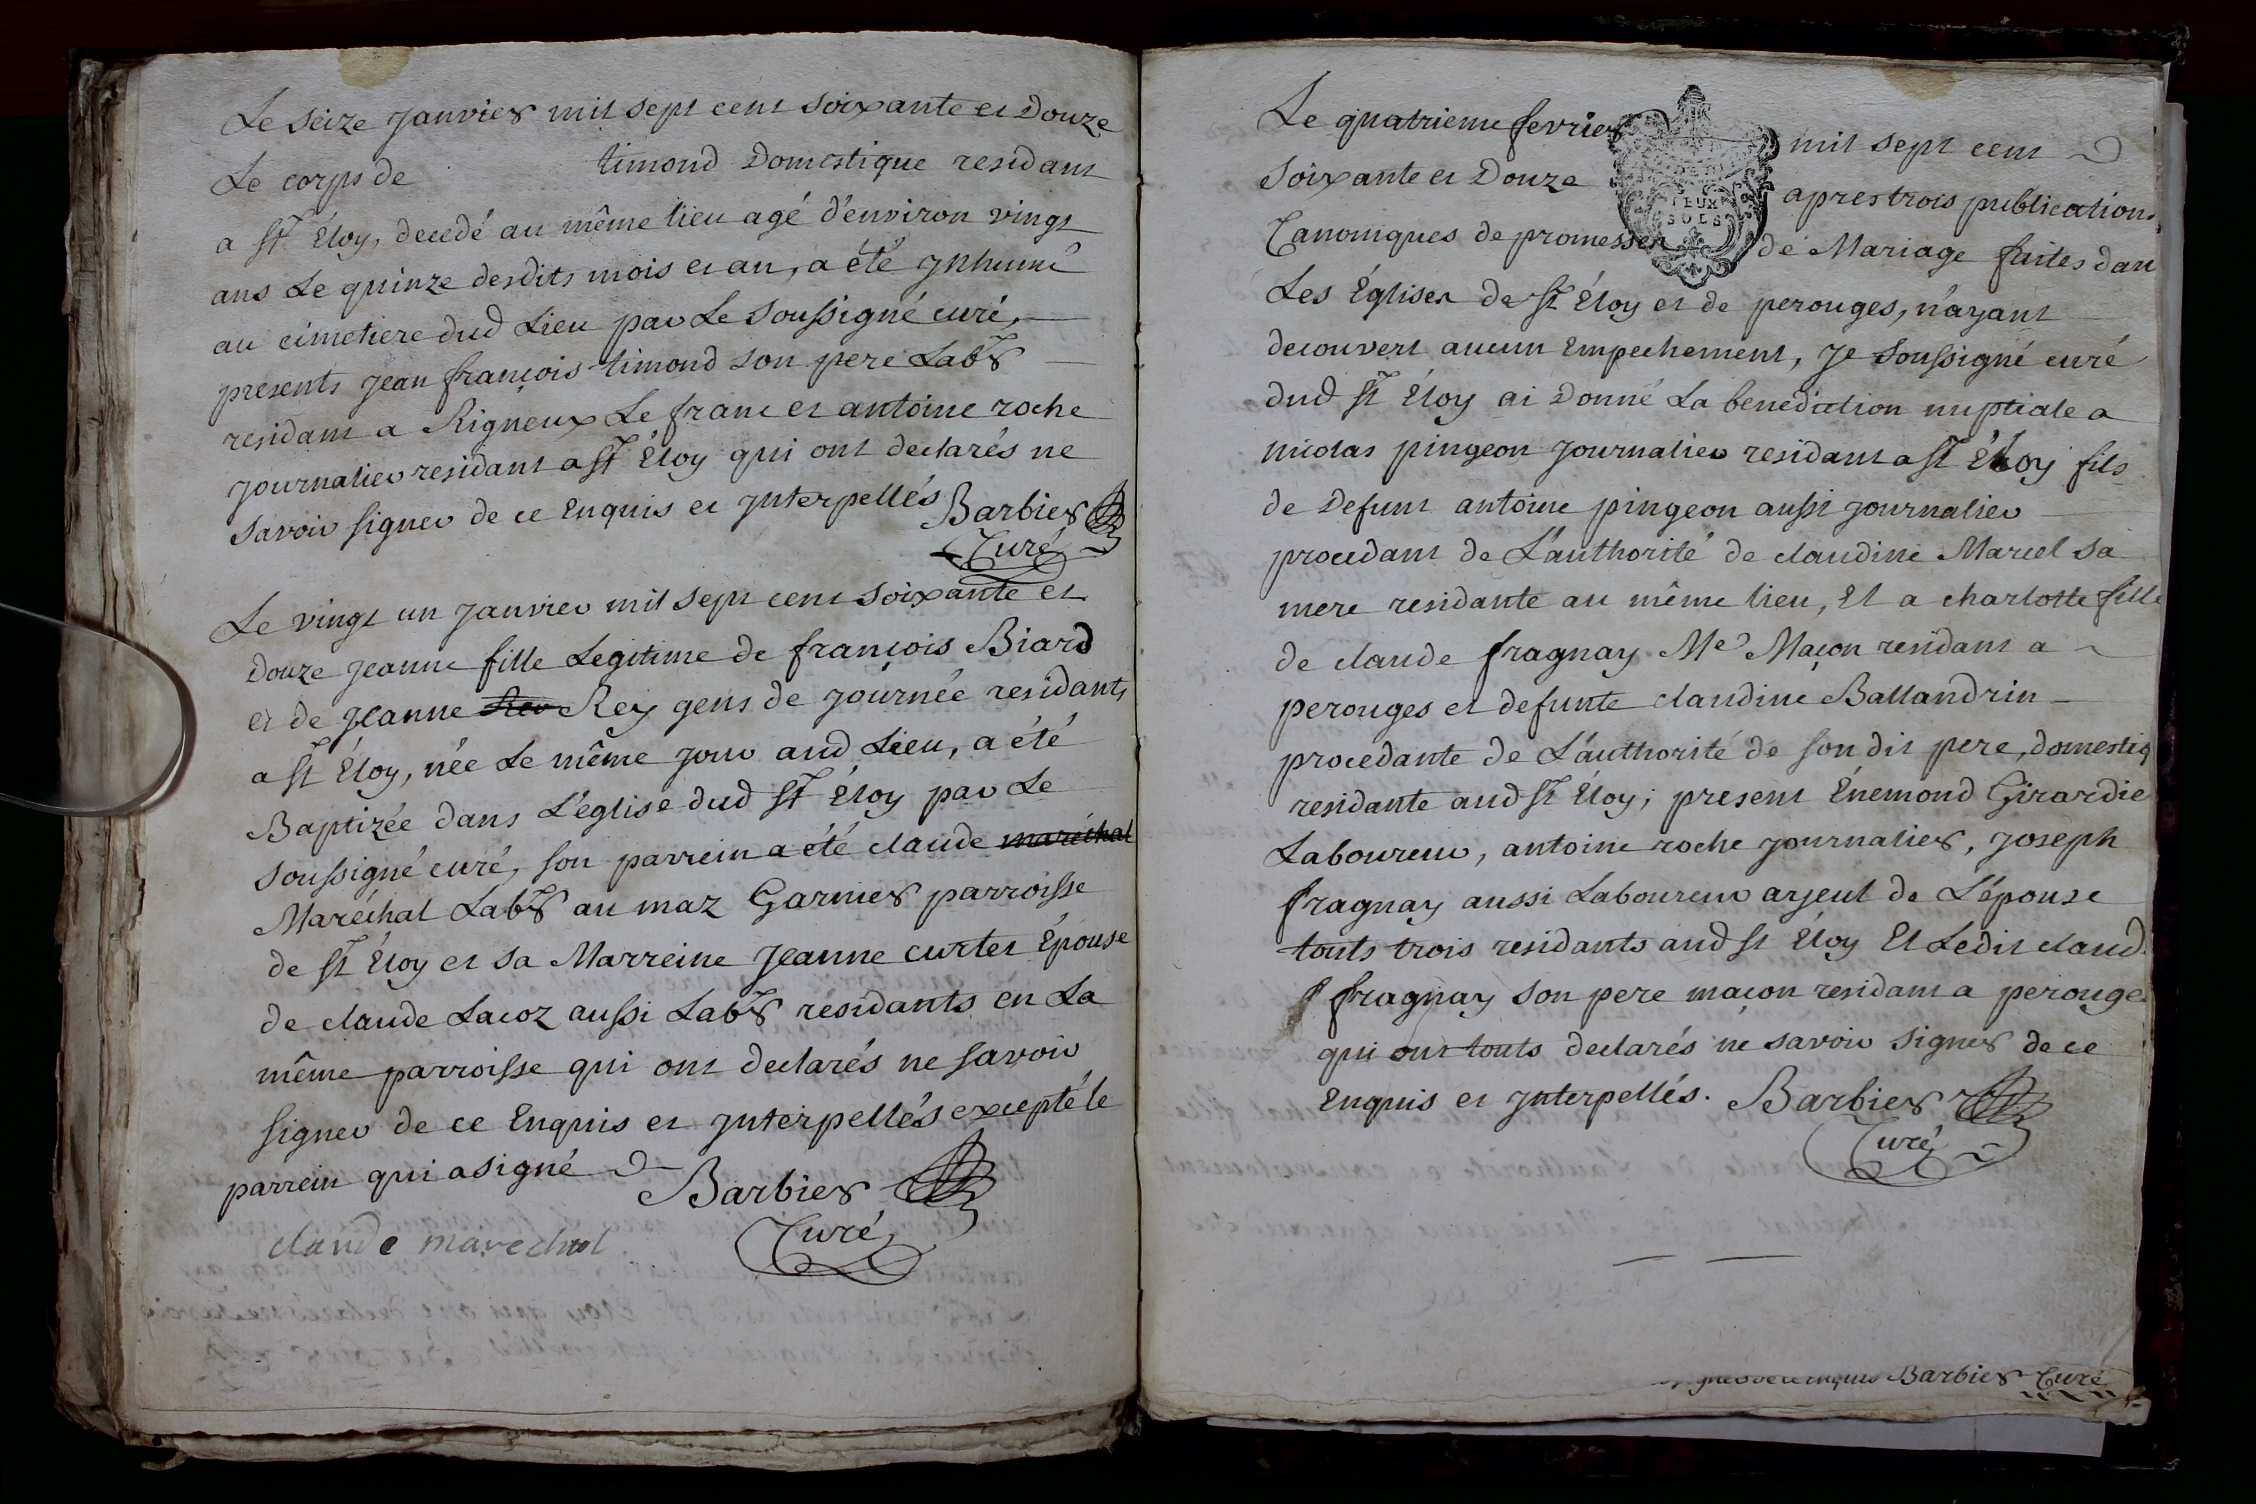 Le seize janvier mil sept cent soixante et Douze
Le corps de timond Domestique residant
a St Éloy, decedé au même lieu agé d'environ vingt
ans Le quinze desdits mois et an, a été jnhumé
au cimetiere dud Lieu par Le soussigné curé,
presents jean françois timond son pere Labr
residant a Rigneux Le franc et antoine roche
journalier residant a St Éloy qui ont declarés ne
savoir signer de ce Enquis et jnterpellés Barbier
Curé
Le vingt un janvier mil sept cent soixante et
Douze jeanne fille Legitime de françois Biard
et de jeanne Rey gens de journée residants
a St Éloy, née Le même jour aud Lieu, a été
Baptizée dans L'église dud St Éloy par Le
soussigné curé, son parrein a été claude maréchal
Maréchal Labr au maz Garnier parroisse
de St Éloy et sa Marreine jeanne curtet Épouse
de claude Lacoz aussi Labr residants en La
même parroisse qui ont declarés ne savoir
signer de ce Enquis et jnterpellés excepté le
parrein qui a signé Barbier
claude marechal Curé
Le quatrieme fevrier mil sept cent
soixante et Douze apres trois publications
DEUX
SOLS
Canoniques de promesses de Mariage faites dan
Les Églises de St Éloy et de perouges, n'ayant
decouvert aucun Empechement, je soussigné curé
dud St Éloy ai Donné La benediction nuptiale a
nicolas pingeon journalier residant a St Éloy fils
de Defunt antoine pingeon aussi journalier
procedant de L'authorité de claudine Marcel sa
mere residante au même lieu, Et a charlotte fille
de claude fragnay Me Maçon residant a
perouges et defunte claudine Ballandrin
procedante de L'authorité de son dit pere, domestiq
residante aud St Éloy; present Énemond Girardie
Laboureur, antoine roche journalier, joseph
fragnay aussi Laboureur ayeul de L'épouse
touts trois residants aud St Éloy Et Ledit claud
fragnay son pere maçon residant a perouges
qui ont touts declarés ne savoir signer de ce
Enquis et jnterpellés. Barbier
Curé
Enquis Barbier Curé